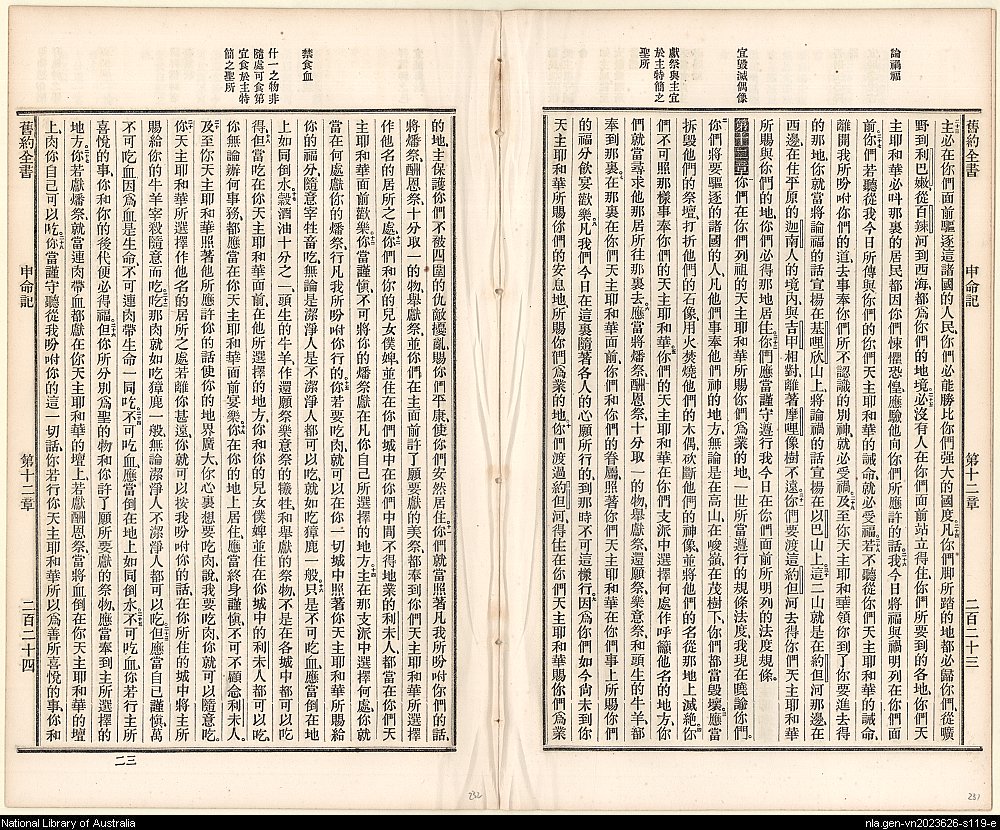 論禍福
宜毀滅偶像
獻祭與主宜
於主特簡之
聖所
舊約全書 申命記 第十二章 二百二十三
主必在你們面前驅逐這諸國的人民、你們必能勝比你們強大的國度、凡你們脚所踏的地都必歸你們、從曠
野到利巴嫩、從百辣河到西海、都爲你們的地境、必沒有人在你們面前站立得住、你們所要到的各地、你們天
主耶和華必呌那裏的居民都因你們悚懼恐惶、應驗他向你們所應許的話、我今日將福與禍明列在你們面
前、你們若聽從我今日所傳與你們的你們天主耶和華的誡命、就必受福、若不聽從你們天主耶和華的誡命、
離開我所吩咐你們的道、去事奉你們所不認識的別神、就必受禍、及至你天主耶和華領你到了你要進去得
的那地、你就當將論福的話宣揚在基哩欣山上、將論禍的話宣揚在以巴山上、這二山就是在約但河那邊、在
西邊、在住平原的迦南人的境內、與吉甲相對、離著摩哩像樹不遠、你們要渡這約但河、去得你們天主耶和華
所賜與你們的地、你們必得那地居住、你們應當謹守遵行我今日在你們面前所明列的法度規條。
第十二章 你們在你們列祖的天主耶和華所賜你們爲業的地、一世所當遵行的規條法度、我現在曉諭你們、
你們將要驅逐的諸國的人、凡他們事奉他們神的地方、無論是在高山、在峻嶺、在茂樹下、你們都當毀壞、應當
拆毀他們的祭壇、打折他們的石像、用火焚燒他們的木偶、砍斷他們的神像、並將他們的名從那地上滅絕、你
們不可照那樣事奉你們的天主耶和華、你們的天主耶和華在你們支派中選擇何處作呼籲他名的地方、你
們就當尋求他那居所、往那裏去、應當將燔祭、酬恩祭、十分取一的物、舉獻祭、還願祭、樂意祭、和頭生的牛羊、都
奉到那裏、在那裏在你們天主耶和華面前、你們和你們的眷屬、照著你們天主耶和華在你們事上所賜你們
的福分、飲宴歡樂、凡我們今日在這裏隨著各人的心願所行的、到那時不可這樣行、因爲你們如今尙未到你
天主耶和華所賜你們的安息地、所賜你們爲業的地、你們渡過約但河、得住在你們天主耶和華賜你們爲業
禁食血
什一之物非
隨處可食第
宜食於主特
簡之聖所
的地、主保護你們不被四圍的仇敵擾亂、賜你們平康、使你們安然居住、你們就當照著凡我所吩咐你們的話、
將燔祭、酬恩祭、十分取一的物、舉獻祭、並你們在主面前許了願要獻的美祭、都奉到你們天主耶和華所選擇
作他名的居所之處、你們和你們的兒女僕婢、並住在你們城中在你們中間不得地業的利未人、都當在你們天
主耶和華面前歡樂、你當謹愼、不可將你的燔祭獻在凡你自己所選擇的地方、主在那支派中選擇何處、你就
當在何處獻你的燔祭、行凡我所吩咐你行的、你若要吃肉、就可以在你一切城中、照著你天主耶和華所賜給
你的福分、隨意宰牲畜吃、無論是潔淨人、是不潔淨人、都可以吃、就如吃獐鹿一般、只是不可吃血、應當倒在地
上、如同倒水、穀酒油十分之一、頭生的牛羊、作還願祭樂意祭的犧牲、和舉獻的祭物、不是在各城中都可以吃
得、但當吃在你天主耶和華面前、在他所選擇的地方、你和你的兒女僕婢、並住在你城中的利未人都可以吃、
你無論辦何事務、都應當在你天主耶和華面前宴樂、你在你的地上居住、應當終身謹愼、不可不顧念利未人。
及至你天主耶和華照著他所應許你的話、使你的地界廣大、你心裏想要吃肉、說、我要吃肉、你就可以隨意吃、
你天主耶和華所選擇作他名的居所之處、若離你甚遠、你就可以按我吩咐你的話、在你所住的城中、將主所
賜給你的牛羊宰殺、隨意而吃、吃那肉就如吃獐鹿一般、無論潔淨人不潔淨人都可以吃、但應當自己謹愼、萬
不可吃血、因爲血是生命、不可連肉帶生命一同吃、不可吃血、應當倒在地上、如同倒水、不可吃血、你若行主所
喜悅的事、你和你的後代便必得福、但你所分別爲聖的物、和你許了願所要獻的祭物、應當奉到主所選擇的
地方、你若獻燔祭、就當連肉帶血都獻在你天主耶和華的壇上、若獻酬恩祭、當將血倒在你天主耶和華的壇
上、肉你自己可以吃、你當謹守聽從我吩咐你的這一切話、你若行你天主耶和華所以爲善所喜悅的事、你和
舊約全書 申命記 第十二章 二百二十四
二三
232
231
National Library of Australia
nla.gen-vn2023626-s119-e